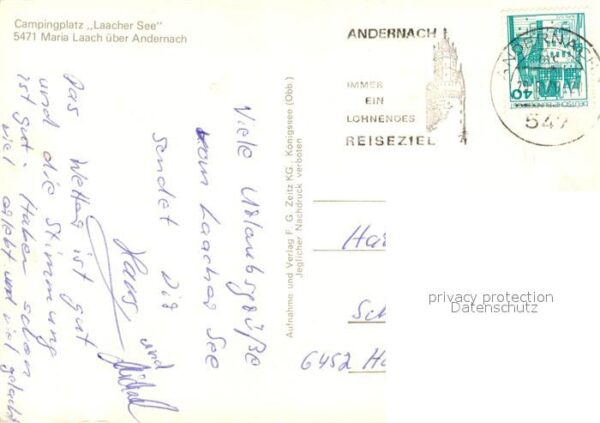 Campingplatz „Laacher See"
5471 Maria Laach über Andernach
ANDERNACH
IMMER
EIN
LOHNENDES
REISEZIEL
ANDERNACH
547
40
DEUTSCHE BUNDESPOST
Aufnahme und Verlag F. G. Zeitz KG., Königssee (Obb.)
Jeglicher Nachdruck verboten
Viele Urlaubsgrüße
vom Laacher See
sendet Dir
Hans und
Das Wetter ist gut
und die Stimmung
ist gut. Haben schon
viel erlebt und viel gelacht
Ha
Sch
6452 Ha
privacy protection
Datenschutz